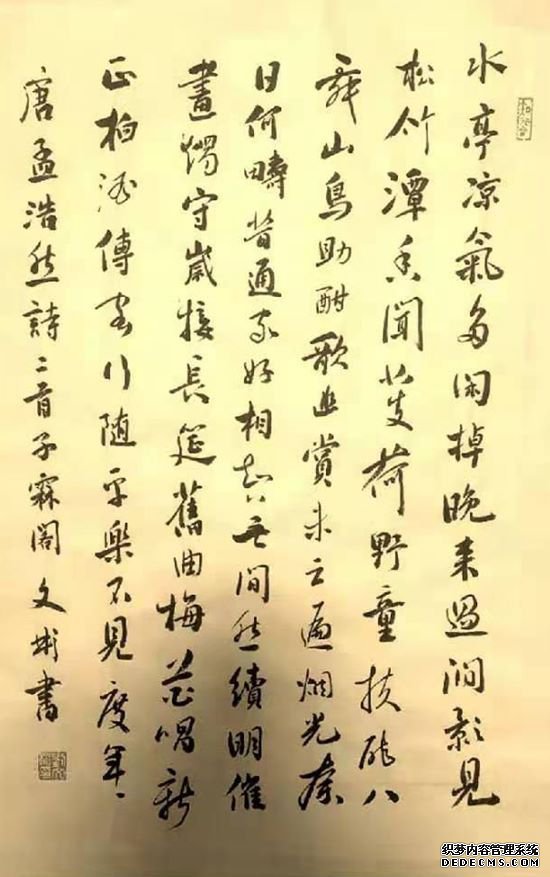 水亭凉氣多闲掉晚来過澗影見
松竹潭香聞芰荷野童扶醉八
舞山鳥助酣歌幽賞未云遍烟光奈
日何疇昔通家好相知無間然續明催
畫燭守歲接長筵舊曲梅花唱新
正柏酒傳客行随處樂不見度年、
唐孟浩然詩二首子霖閣文彬書
织梦内容管理系统
DEDECMS.COM